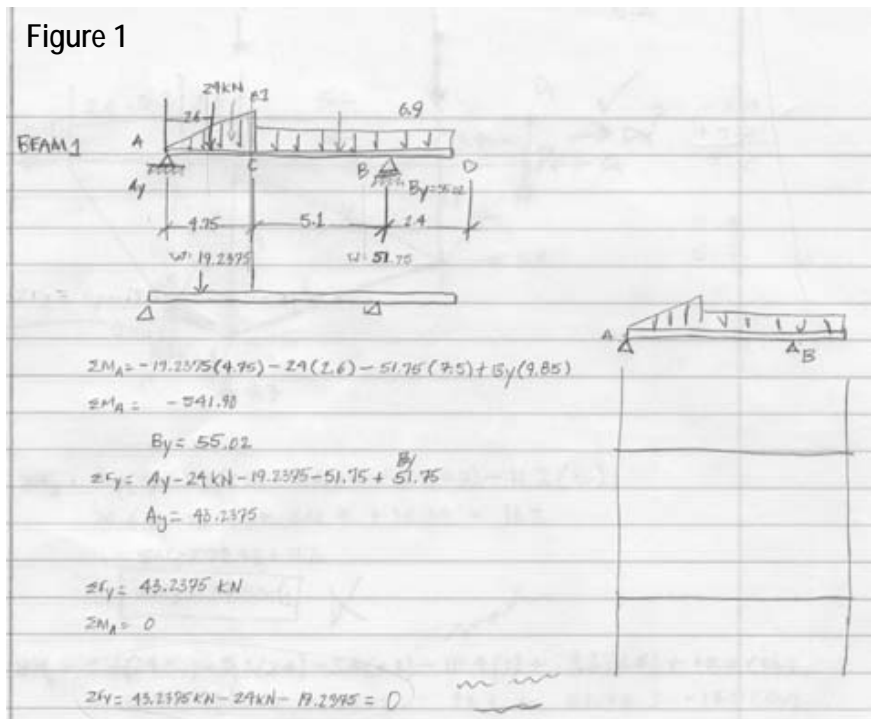 Figure 1
24KN 8.1
2.6 6.9
BEAM 1 A
C B D
Ay By=55.02
4.75 5.1 2.4
w: 19.2375 w: 51.75
A B
ΣMA= -19.2375(4.75) - 24(2.6) - 51.75(7.5) + By(9.85)
ΣMA= -541.90
By= 55.02
By
ΣFy= Ay-24KN-19.2375-51.75 + 51.75
Ay= 43.2375
ΣFy= 43.2375 KN
ΣMA= 0
ΣFy= 43.2375KN-24KN-19.2375 = 0